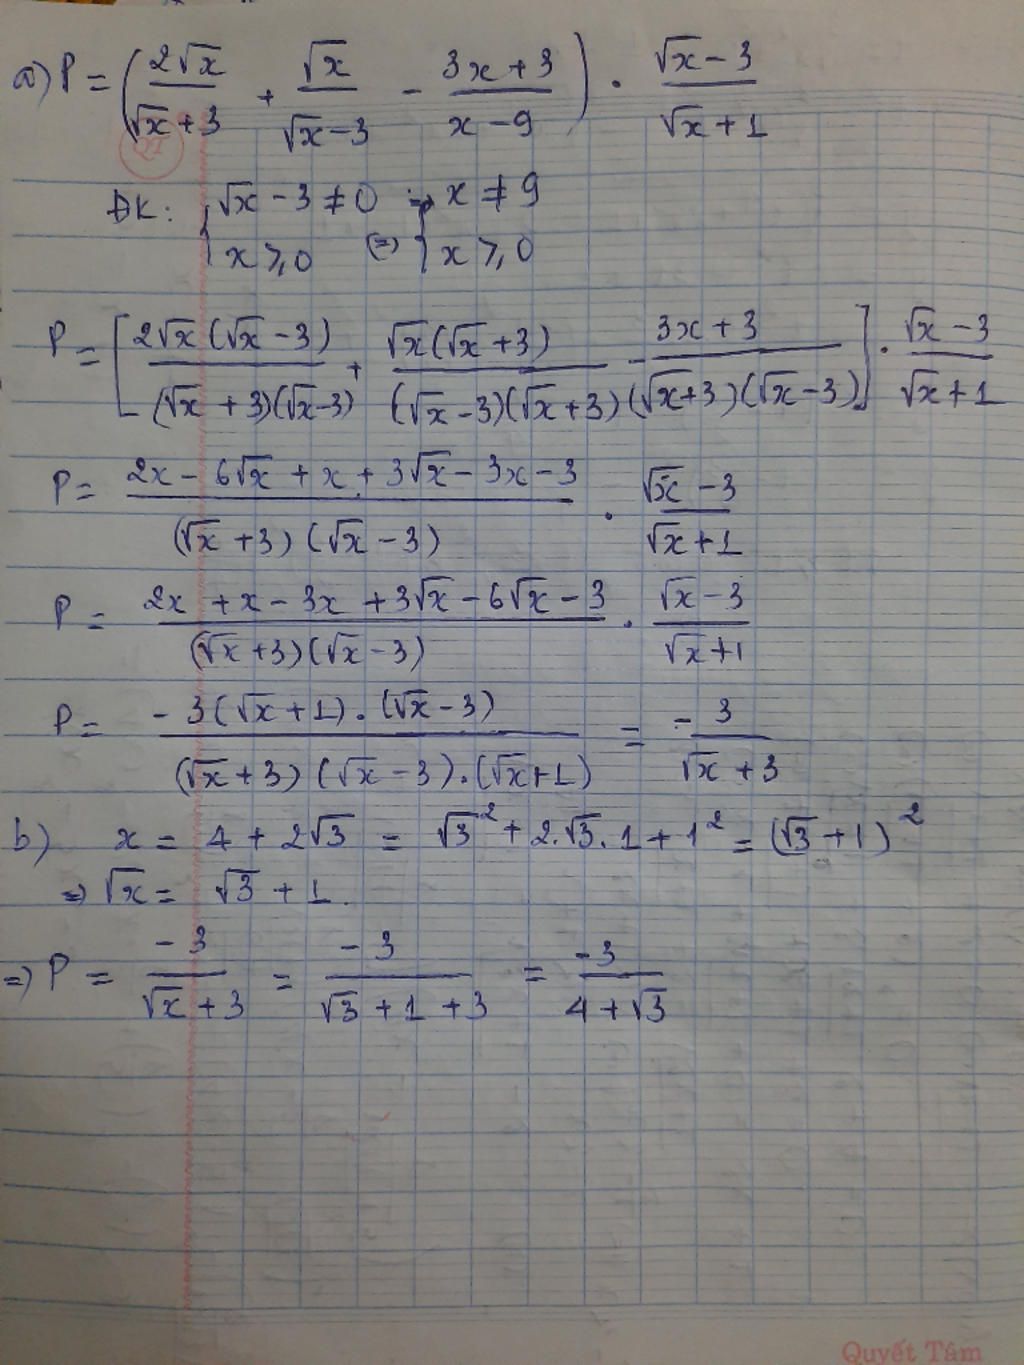 a) P = ( 2√x / (√x + 3) + √x / (√x - 3) - (3x + 3) / (x - 9) ) . (√x - 3) / (√x + 1)
QT
ĐK: { √x - 3 ≠ 0 ⇒ x ≠ 9
{ x ≥ 0 (=) { x ≥ 0
P = [ 2√x (√x - 3) / (√x + 3)(√x - 3) + √x (√x + 3) / (√x - 3)(√x + 3) - (3x + 3) / (√x + 3)(√x - 3) ] . (√x - 3) / (√x + 1)
P = (2x - 6√x + x + 3√x - 3x - 3) / (√x + 3)(√x - 3) . (√x - 3) / (√x + 1)
P = (2x + x - 3x + 3√x - 6√x - 3) / (√x + 3)(√x - 3) . (√x - 3) / (√x + 1)
P = - 3(√x + 1) . (√x - 3) / (√x + 3)(√x - 3) . (√x + 1) = - 3 / (√x + 3)
b) x = 4 + 2√3 = √3² + 2.√3.1 + 1² = (√3 + 1)²
⇒ √x = √3 + 1.
=) P = -3 / (√x + 3) = -3 / (√3 + 1 + 3) = -3 / (4 + √3)
Quyết Tâm